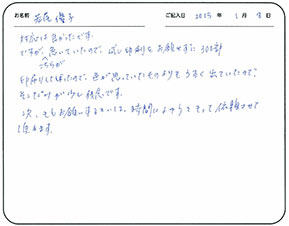 お名前 ご記入日 2015 年 1月 8日
対応は良かったです。
ですが、急いでいたので、試し印刷をお願いせずに300部
こちらが
印刷してもらったので、色が思っていたものよりもうすく出ていたので、
そこだけが少し残念です。
次、もしお願いするときは、時間によゆうをもって依頼させて
頂きます。